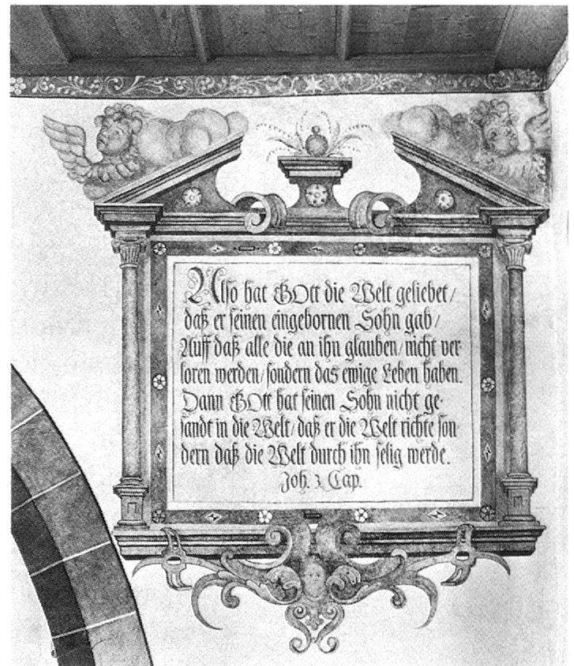 Also hat GOtt die Welt geliebet/
daß er seinen eingebornen Sohn gab/
Auff daß alle die an ihn glauben/ nicht ver
loren werden/ sondern das ewige Leben haben.
Dann GOtt hat seinen Sohn nicht ge-
sandt in die Welt/ daß er die Welt richte son
dern daß die Welt durch ihn selig werde.
Joh. 3 Cap.